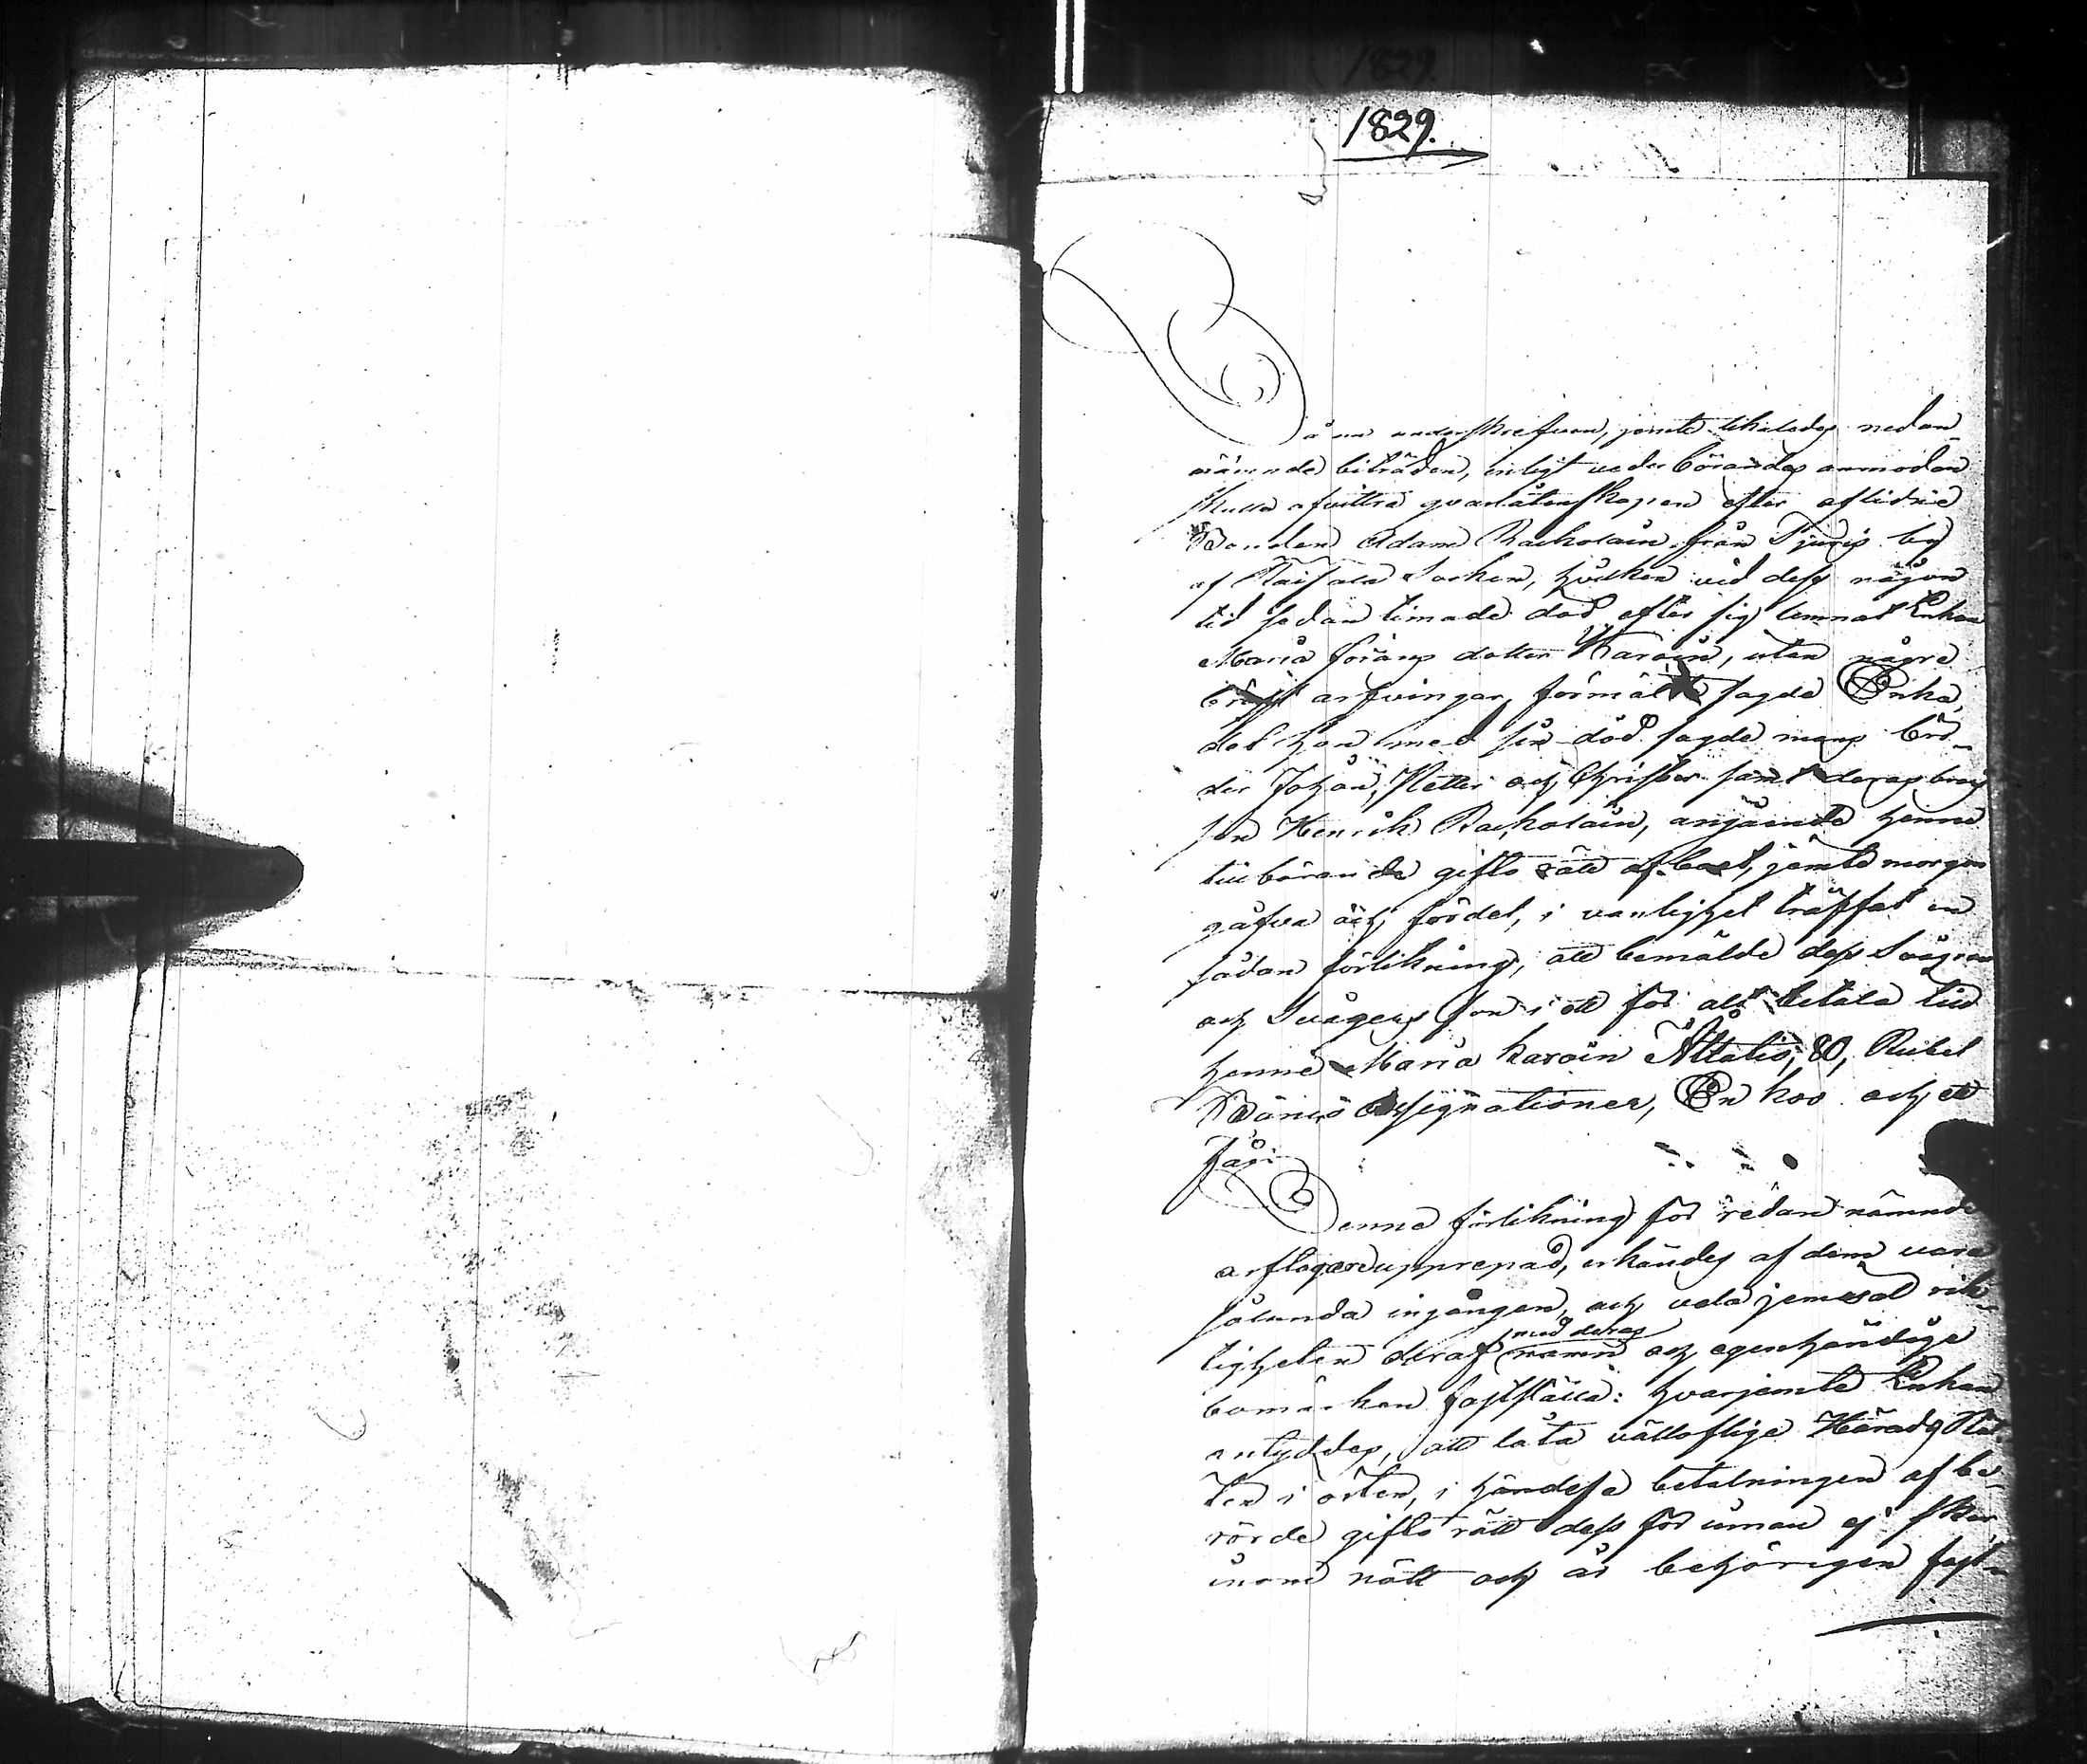 1829.
Då nu underskrefwen, jemte likaledes nedan-
nämnde biträden, enligt vederbörandes anmodan
skulle afvittra qvarlåtenskapen efter aflidne
Bonden Adam Rackolain från Tjusis by
af Räisälä Socken, hvilken vid dess någon
tid sedan timade död efter sig lemnat Enkan
Maria Jörans dotter Karoin, utan någre
bröst arfvingar, förmälte sagde Enka,
det hon med sin död sagde mans brö-
der Johan, Petter och Christer samt deras brors
son Henrik Rackolain, angående henne
tillbörande giftorätt af boet, jämte morgon
gåfva och fördel, i vanlighet träffat en
sådan förlikning, att bemälde dess Svågrar
och Svågers son i ett för alt betala till
henne Maria Karoin Åttatio, 80, Rubel
Banco Assignationer, En ko och ett
Får.
Denne förlikning för redan nämnde
arftagare upprepad, erkändes af dem vara
sålunda ingången, och vela jemväl rik-
tigheten deraf med deras namn och egenhändige
bomärken fastställa: hvarjemte Enkan
antyddes, att låta välloflige Härads Rät-
ten i orten, i händelse betalningen af be-
rörde giftorätt dess förinnan ej sker
inom natt och år behörigen fast-